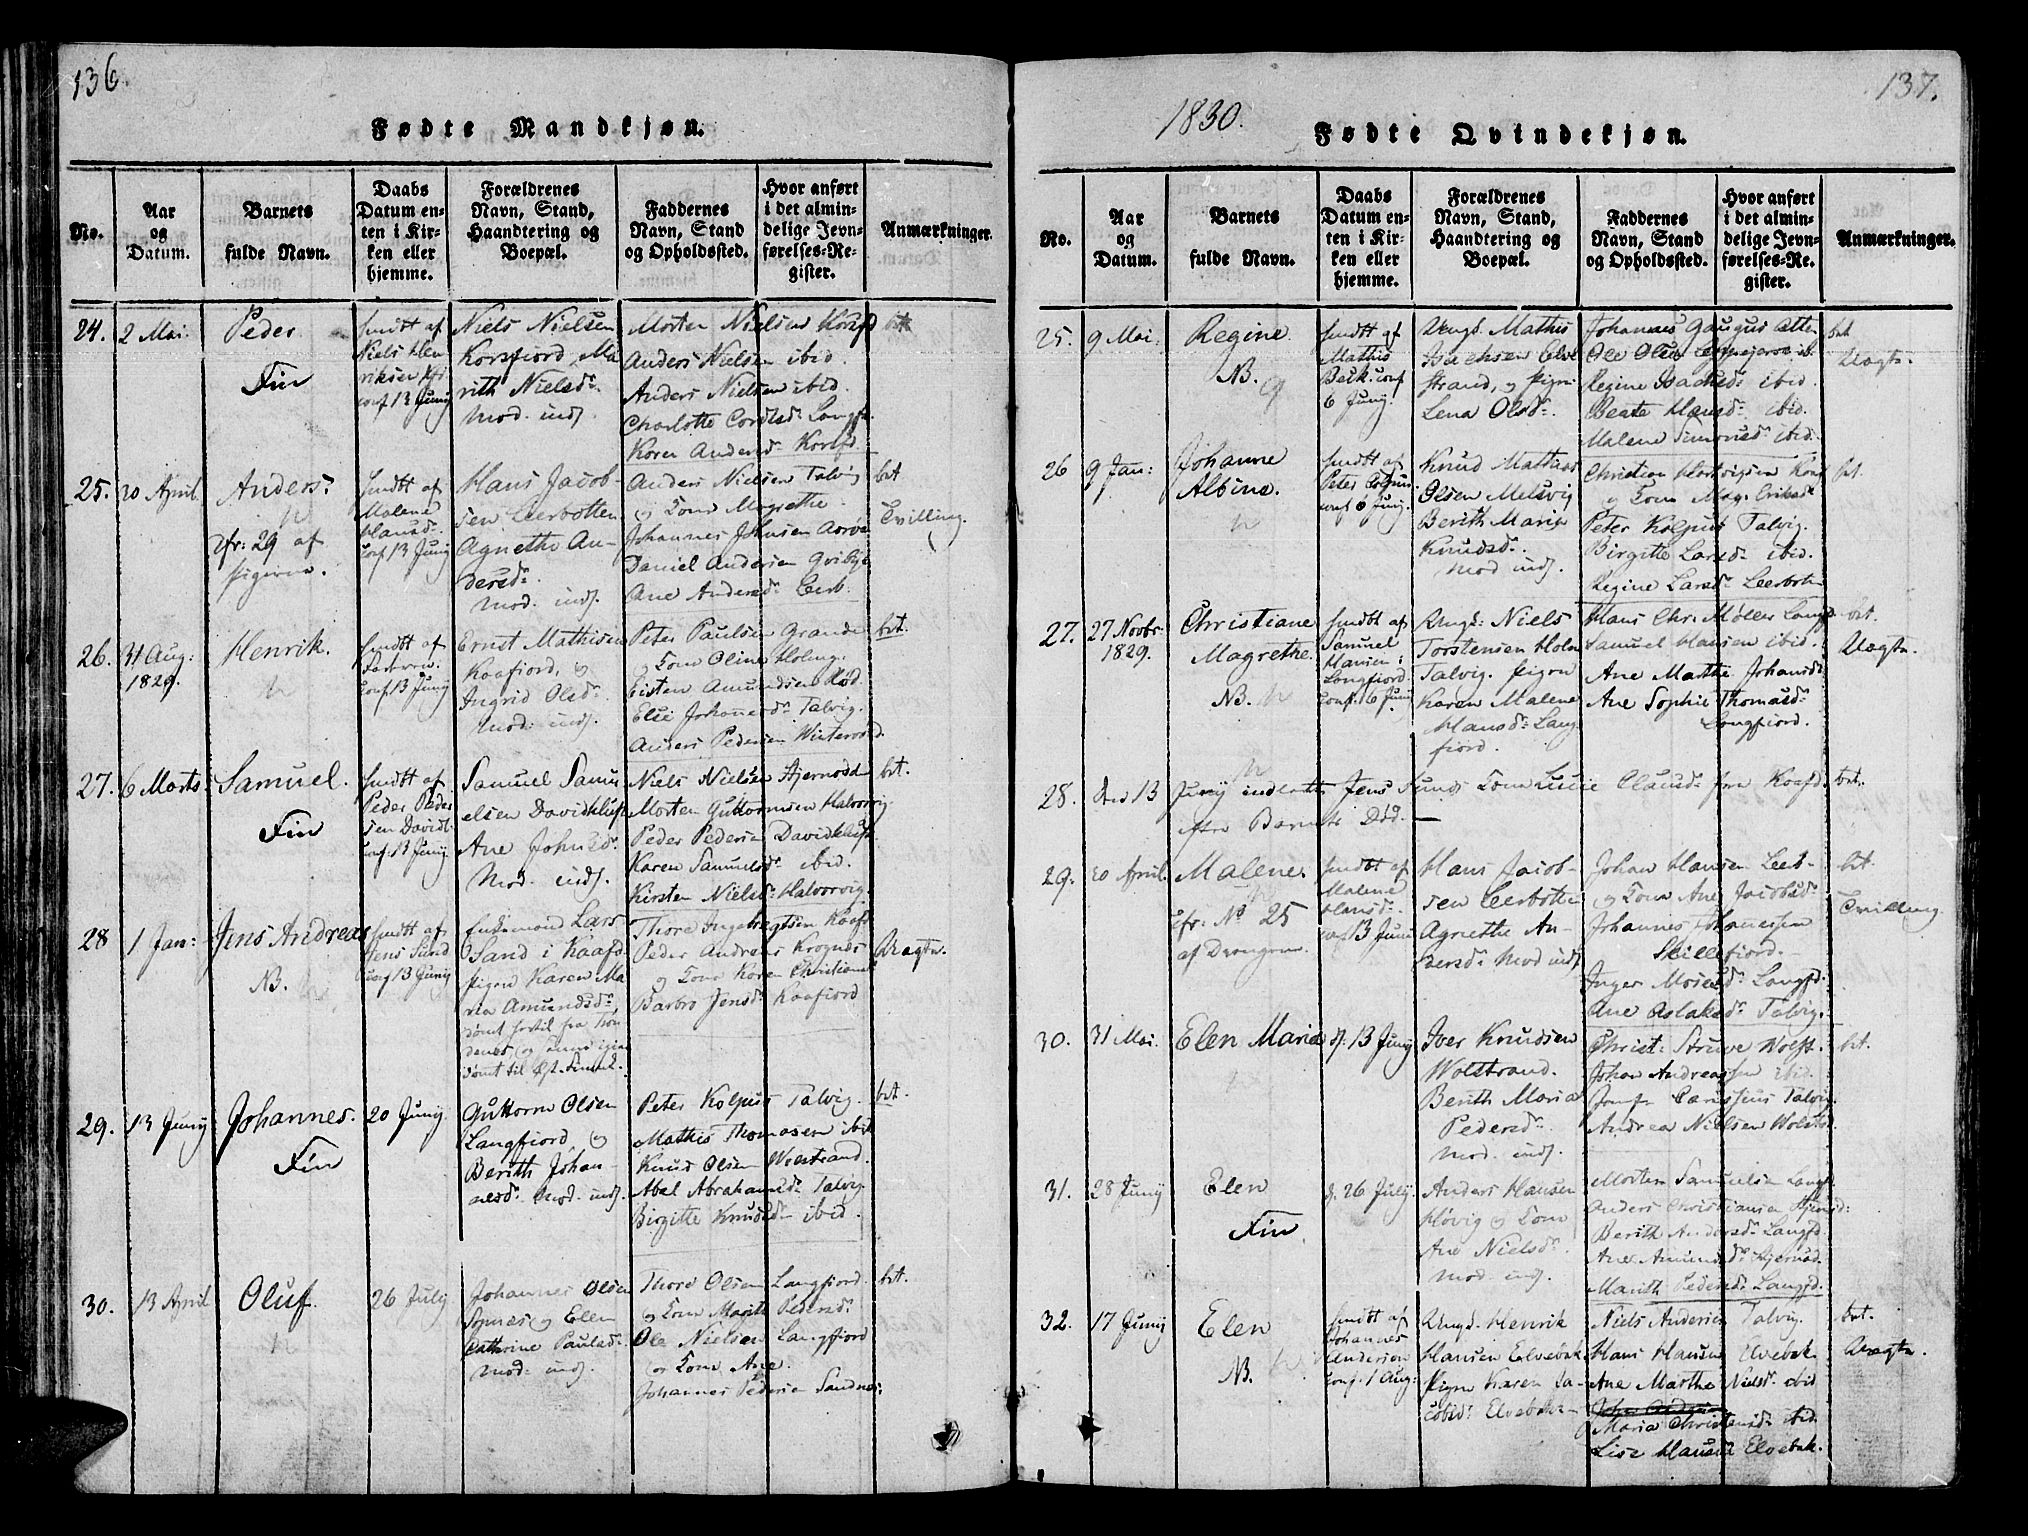 136.
Fødte Mandkjøn.
No.
Aar
og
Datum.
Barnets
fulde Navn.
Daabs
Datum en-
ten i Kir-
ken eller
hjemme.
Forældrenes
Navn, Stand,
Haandtering og
Boepæl.
Faddernes
Navn, Stand
og Opholdssted.
Hvor anført
i det almin-
delige Jevn-
førelses-Re-
gister.
Anmærkninger.
24.
2 Mai.
Peder
Fin
hmdbt af
Niels Hen
riksen
conf 13 Junij
Niels Nielsen
Korsfiord, Ma
rith Nielsd:
mod. indf.
Morten Nielsens Korsfd
Anders Nielsen ibid.
Anders Nielsen ibid.
Charlotte Cordtsd: Langf.
Karen Andersd: Korsfd.
bet
25.
20 April
Anders.
cfr: 29 af
Pigerne.
hmdbt af
Malene
Hansd:
conf 13 Junij
Hans Jacob-
sen Leerbotten
Agnethe An-
dersd:
mod. indf.
Anders Nielsen Talvig
og Kone Magrethe
Johannes Johnsen Aarøe
Daniel Andersen Qviby
Ane Andersd: Leerb.
bet
Tvilling.
26.
31 Aug:
1829.
Henrik.
hmdbt af
Faderen.
conf 13 Junij
Ernst Mathisen
Kaafiord, og
Ingrid Olsd:
mod: indf.
Peter Paulsen Grande
og Kone Oline Holmg.
Eisten Amundsen Rød.
Else Johannesd: Talvig.
Anders Pedersen Winterød.
bet.
27.
6 Marts
Samuel.
Fin
hmdbt af
Peder Peder
sen Davidkl.
conf. 13 Junij
Samuel Samu
elsen Davidkluft
Ane Johnsd:
mod. indf.
Niels Nielsen Hjernødd
Morten Guttormsen Halvorvig
Peder Pedersen Davidkluft.
Karen Samuelsd: ibid.
Kirsten Nielsd: Halvorvig.
bet.
28
1 Jan:
Jens Andreas
NB.
hmdbt af
Jens Sund
conf 13 Junij
Enkemand Lars
Sand i Kaafd.
Pigen Karen Ma
ria Amundsd:
Thore Ingebregtsen Kaafd
Peder Andreas Krognes
og Kone Karen Christians
Barbro Jensd: Kaafiord
Uægte.
29.
13 Junij
Johannes.
Fin
20 Junij
Guttorm Olsen
Langfiord, og
Berith Johan-
nesd: mod. indf.
Peter Kolpus Talvig.
Mathis Thomasen ibid
Knud Olsen Wolstrand
Abel Abrahamsd: Talvig
Birgitte Knudsd: ibid.
bet.
30.
13 April
Oluf.
26 July
Johannes Olsen
Sopnes og Elen
Cathrine Paulsd:
mod: indf.
Thore Olsen Langfiord.
og Kone Marith Pedersd:
Ole Nielsen Langfiord
og Kone Ane.
Johannes Pedersen Sandnes.
bet.
137.
1830.
Fødte Qvindekjøn.
No.
Aar
og
Datum.
Barnets
fulde Navn.
Daabs
Datum en-
ten i Kir-
ken eller
hjemme.
Forældrenes
Navn, Stand,
Haandtering og
Boepæl.
Faddernes
Navn, Stand
og Opholdssted.
Hvor anført
i det almin-
delige Jevn-
førelses-Re-
gister.
Anmærkninger.
25.
9 Mai.
Regine
NB.
hmdbt af
Mathis
Beck: conf
6 Junij.
Ungk. Mathis
Isachsen Elve
strand, og Pigen
Lena Olsd:
Johannes Gaugus Alten
Ole Olsen
Regine Isachsd: ibid.
Beate Hansd: ibid.
Malene Simonsd: ibid.
bet
Uægte.
26
9 Jan:
Johanne
Albine.
hmdbt af
Peter Kolpus
conf 6 Junij.
Knud Mathias
Olsen Melsvig
Berith Marie
Knudsd:
mod indf.
Christian Hertvigsen
og Kone Mag. Eriksd:
Peter Kolpus Talvig.
Birgitte Larsd: ibid.
Regine Larsd: Leerbotn
bet.
27.
27 Novbr
1829.
Christiane
Magrethe.
NB.
hmdbt af
Samuel
Hansen i
Langfiord
conf. 6 Junij
Ungk: Niels
Torstensen Holm
Talvig. Pigen
Karen Malene
Hansd: Lang
fiord.
Hans Chr: Møller Langf
Samuel Hansen ibid.
Ane Marthe Johansd:
Ane Sophie Thomasd:
Langfiord.
bet.
Uægte.
28.
den 13 Junij indledtes Jens Sunds Kone Lucie Clausd: fra Kaafd.
efter Barnets Død. —
bet.
29.
20 April.
Malene.
cfr: No 25
af Drengene.
hmdbt af
Malene
Hansd:
conf 13 Junij
Hans Jacob-
sen Leerbotten
Agnethe An-
dersd: mod indf
Johan Hansen Leerb-
og Kone Ane Jacobsd:
Johannes Johannessen
Skillefiord.
Inger Mosesd: Langfd.
Ane Aslaksd: Talvig.
bet.
Tvilling.
30.
31 Mai.
Elen Maria
d. 13 Junij
Iver Knudsen
Wolstrand.
Berith Maria
Pedersd:
mod. indf.
Christ: Struve Wolst.
Johan Andreassen ibid.
Jomf. Talvig.
Andrea Nielsen Wolst.
bet.
31.
28 Junij
Elen
Fin
d. 26 July.
Anders Hansen
Høvig og Kone
Ane Nielsd:
mod. indf.
Morten Samuelsen Langf.
Anders Christiansen Hjernd:
Berith Andersd: Langfd.
Ane Amundsd: Hjernød.
Marith Pedersd: Langfd.
32.
17 Junij
Elen
NB.
hmdbt af
Johannes
Andersen
conf. 1 Aug:
Ungk. Henrik
Hansen Elvebak.
Pigen Karen Ja-
cobsd: Elvebak—
Niels Andersen Talvig.
Hans Hansen Elvebak
Ane Marthe Nielsd: ibid
Maria Christensd: ibid
Lise Hansd Elvebak.
bet.
Uægte.